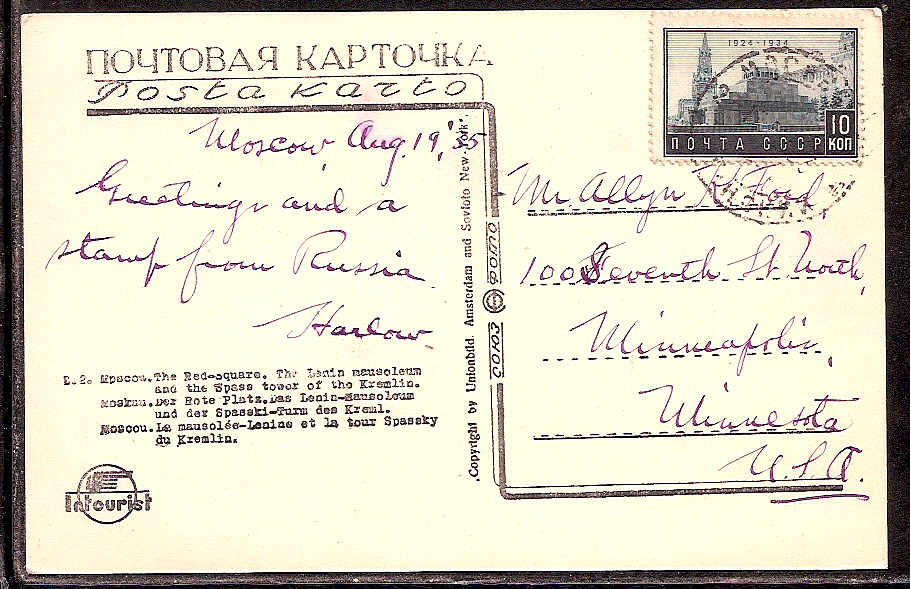 ПОЧТОВАЯ КАРТОЧКА
Posta karto
Moscow Aug. 19, '35
Greetings and a
stamp from Russia
Harlow
E.2. Moscou. The Red-square. The Lenin mausoleum
and the Spass tower of the Kremlin.
Moskau. Der Rote Platz. Das Lenin-Mausoleum
und der Spasski-Turm des Kreml.
Moscou. Le mausolée-Lenine et la tour Spassky
du Kremlin.
Intourist
Copyright by Unionbild. Amsterdam and Sovfoto New-York.
СОЮЗ ФОТО
1924-1934
МОСКВА
ПОЧТА СССР
10 КОП
Mr Allyn K. Ford
100 Seventh St. North,
Minneapolis,
Minnesota
U.S.A.